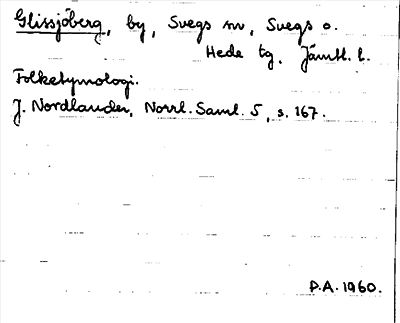 Glissjöberg, by, Svegs sn, Svegs o.
Hede tg, Jämtl. l.
Folketymologi.
J. Nordlander, Norrl. Saml. 5, s. 167.
P.A. 1960.